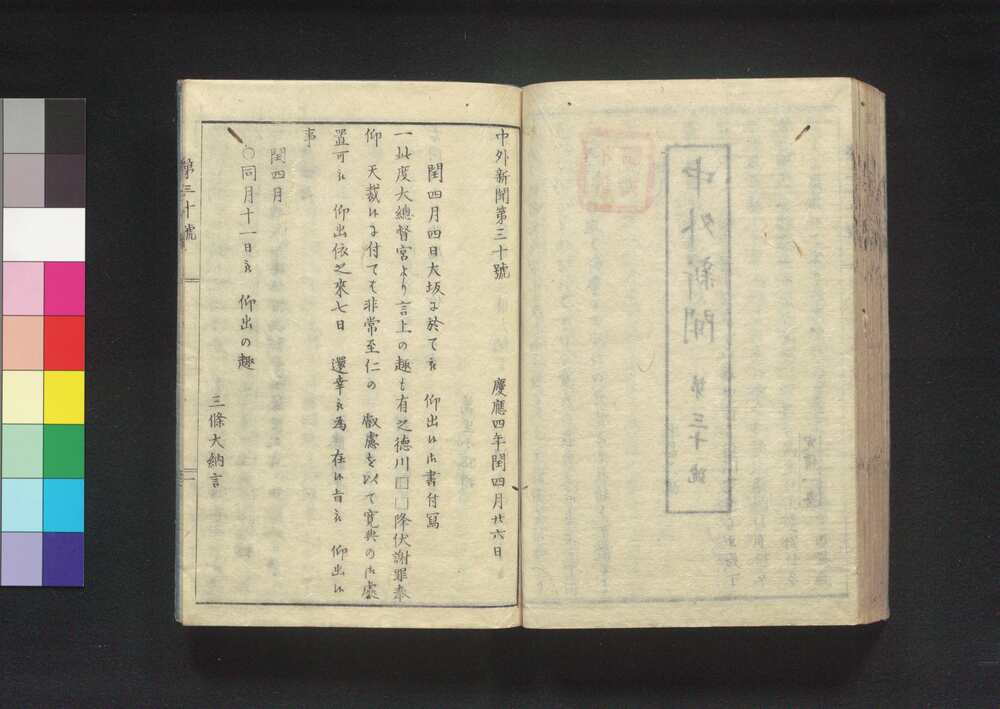 中外新聞第三十號　慶應四年閏四月廿六日
閏四月四日大坂に於て被　仰出候御書付寫
一此度大總督宮より言上の趣も有之德川□□降伏謝罪奉
仰　天裁候に付ても非常至仁の　叡慮を以て寛典の御處
置可被　仰出依之來七日　還幸被為　在候旨被　仰出候
事
閏四月
○同月十一日被　仰出の趣
三條大納言
第三十號